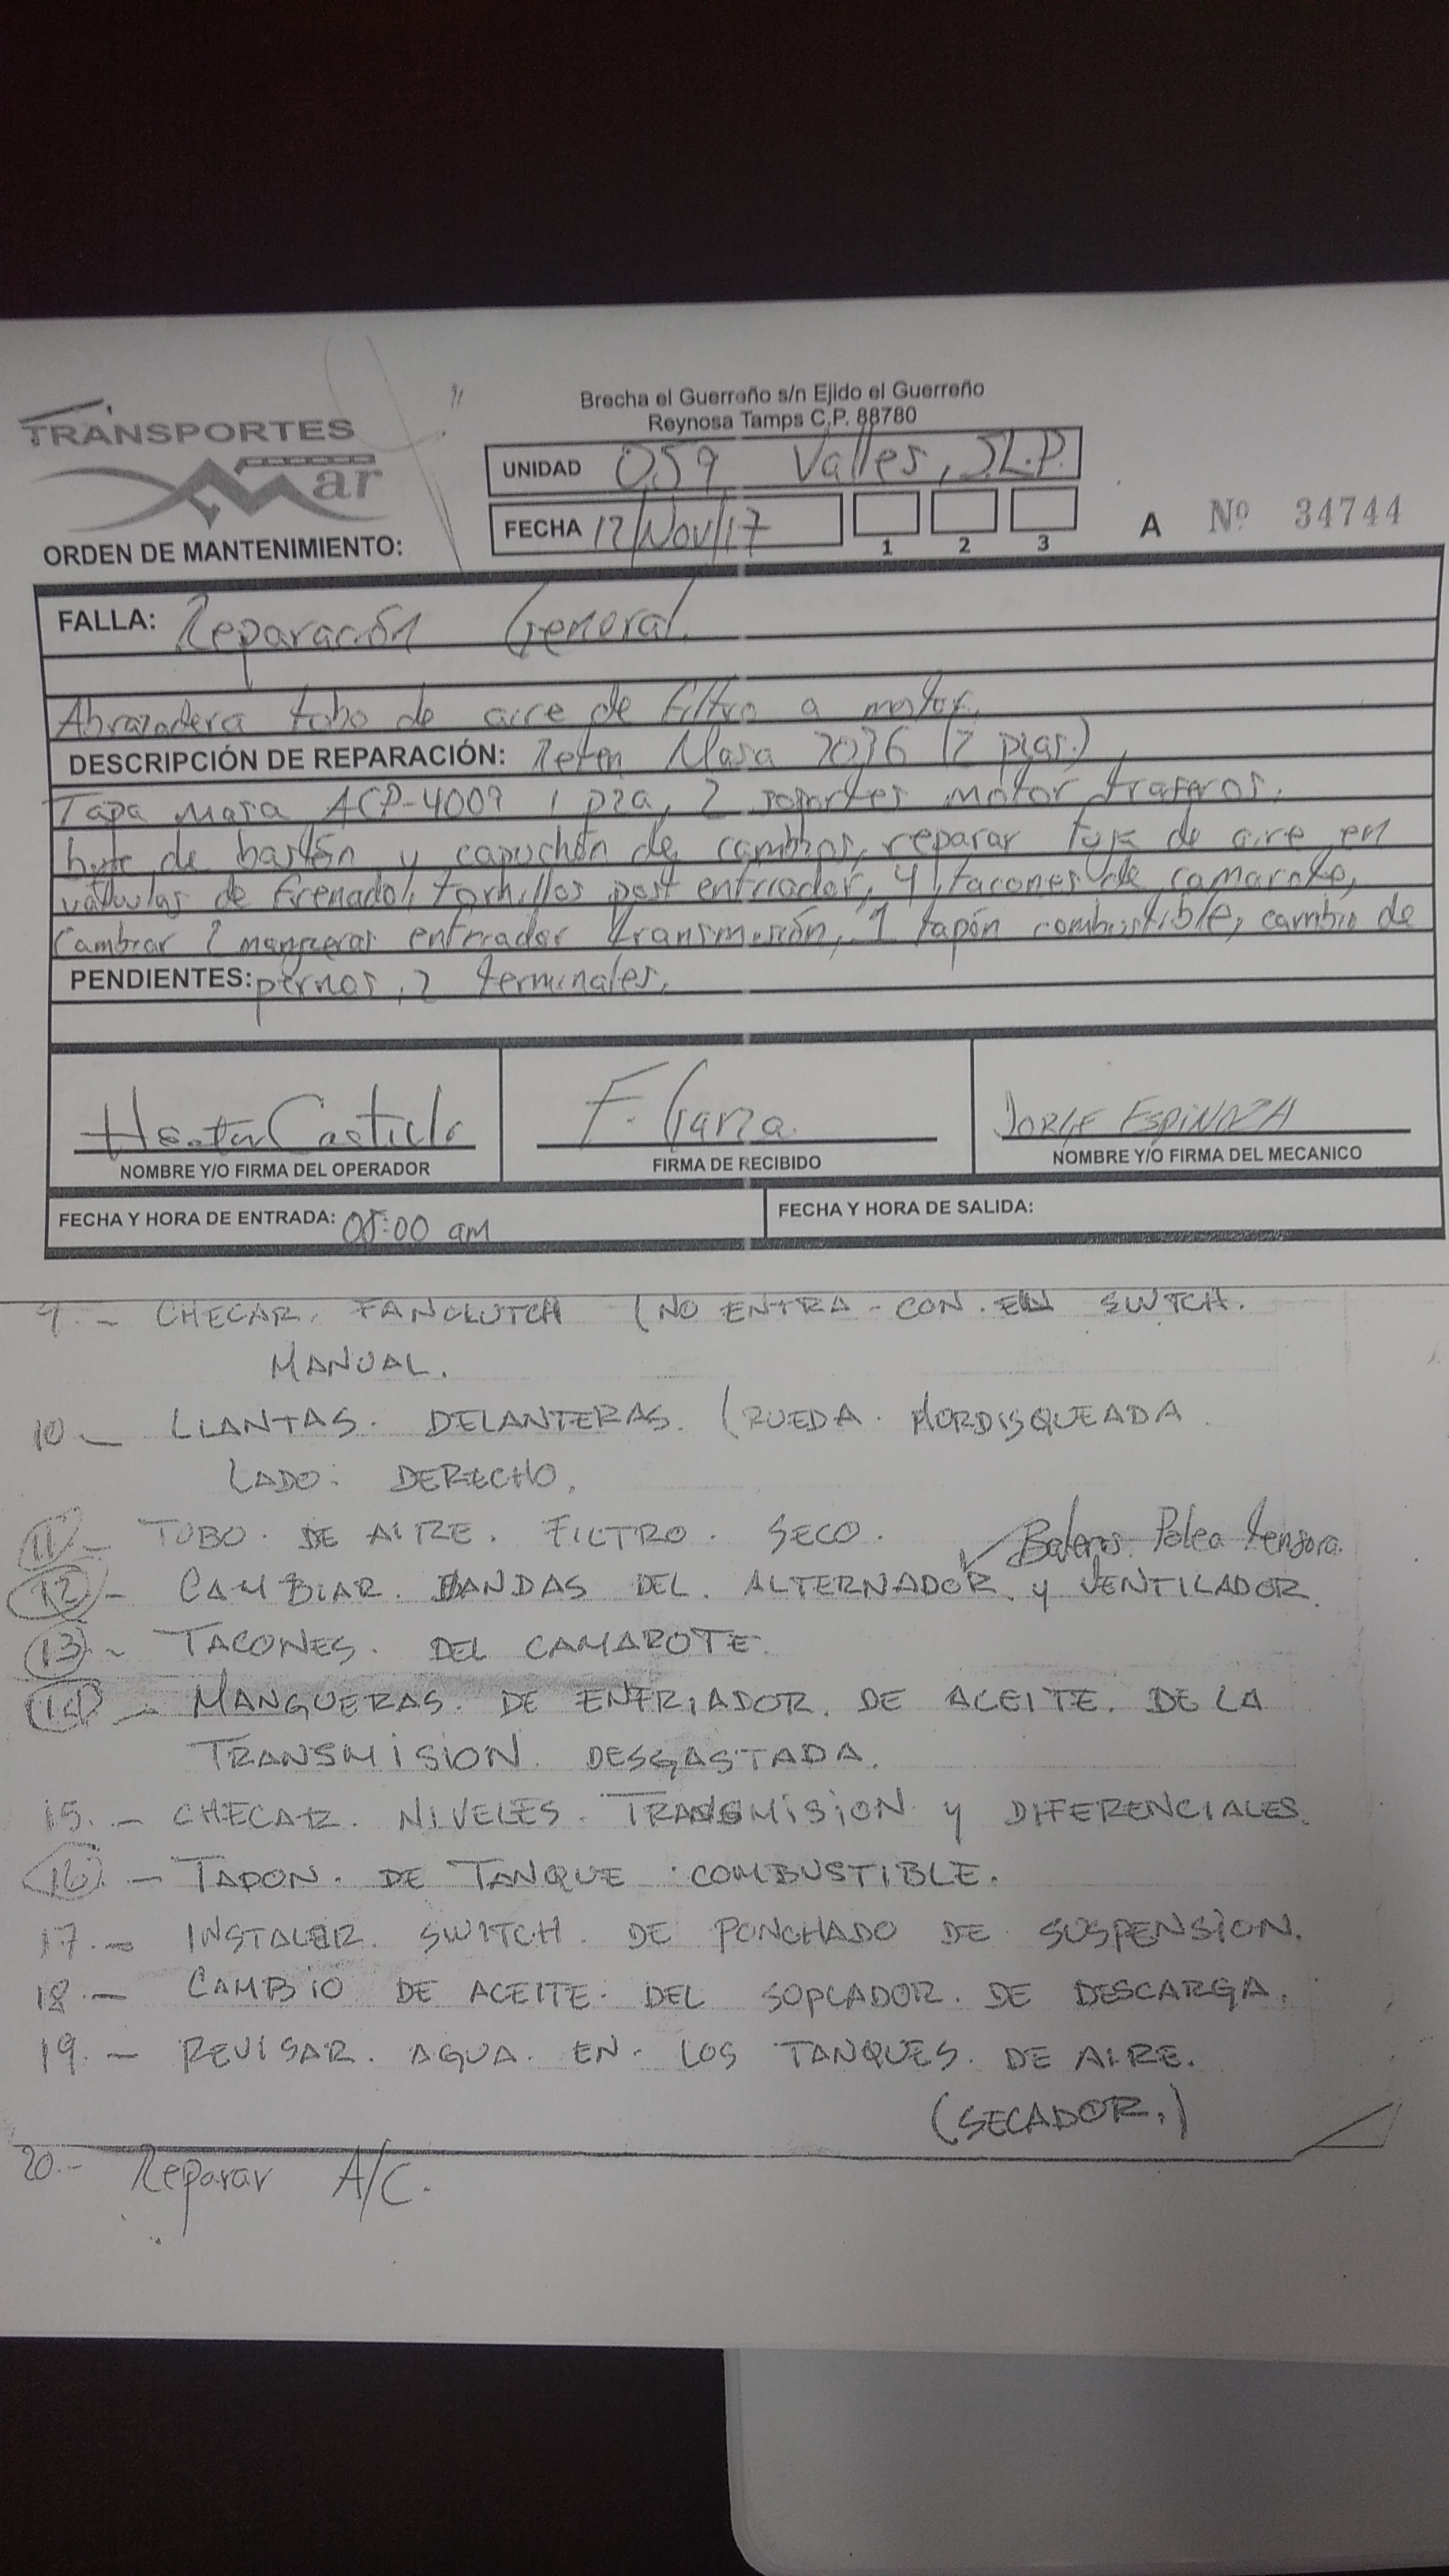 Brecha el Guerreño s/n Ejido el Guerreño
Reynosa Tamps C.P. 88780
TRANSPORTES
Mar
UNIDAD 059 Valles, S.L.P.
FECHA 12/Nov/17
1 2 3
A Nº 34744
ORDEN DE MANTENIMIENTO:
FALLA: Reparación General.
Abrazadera tubo de aire de filtro a motor,
DESCRIPCIÓN DE REPARACIÓN: Reten Masa 2036 (2 pzas.),
Tapa Masa ACP-4009 1 pza, 2 soportes motor traseros,
de bastón y capuchón de cambios, reparar fuga de aire en
válvulas de frenado, tornillos post enfriador, 4 tacones de camarote,
Cambiar 2 mangueras enfriador transmisión, 1 tapón combustible, cambio de
PENDIENTES: pernos, 2 terminales.
Hector Castillo
F. Garza
JORGE ESPINOZA
NOMBRE Y/O FIRMA DEL OPERADOR
FIRMA DE RECIBIDO
NOMBRE Y/O FIRMA DEL MECANICO
FECHA Y HORA DE ENTRADA: 08:00 am
FECHA Y HORA DE SALIDA:
9.- CHECAR. FANCLUTCH (NO ENTRA - CON. EL SWTCH.
MANUAL.
10.- LLANTAS. DELANTERAS. (RUEDA. MORDISQUEADA.
LADO: DERECHO.
11.- TUBO. DE AIRE. FILTRO. SECO.
✓ Baleros Polea tensora
12.- CAMBIAR. BANDAS DEL. ALTERNADOR. y VENTILADOR.
13.- TACONES. DEL CAMAROTE.
14.- MANGUERAS. DE ENFRIADOR. DE ACEITE. DE LA
TRANSMISION. DESGASTADA.
15.- CHECAR. NIVELES. TRANSMISION y DIFERENCIALES.
16.- TAPON. DE TANQUE COMBUSTIBLE.
17.- INSTALAR. SWITCH. DE PONCHADO DE SUSPENSION.
18.- CAMBIO DE ACEITE. DEL SOPLADOR. DE DESCARGA.
19.- REVISAR. AGUA. EN. LOS TANQUES. DE AIRE.
(SECADOR.)
20.- Reparar A/C.